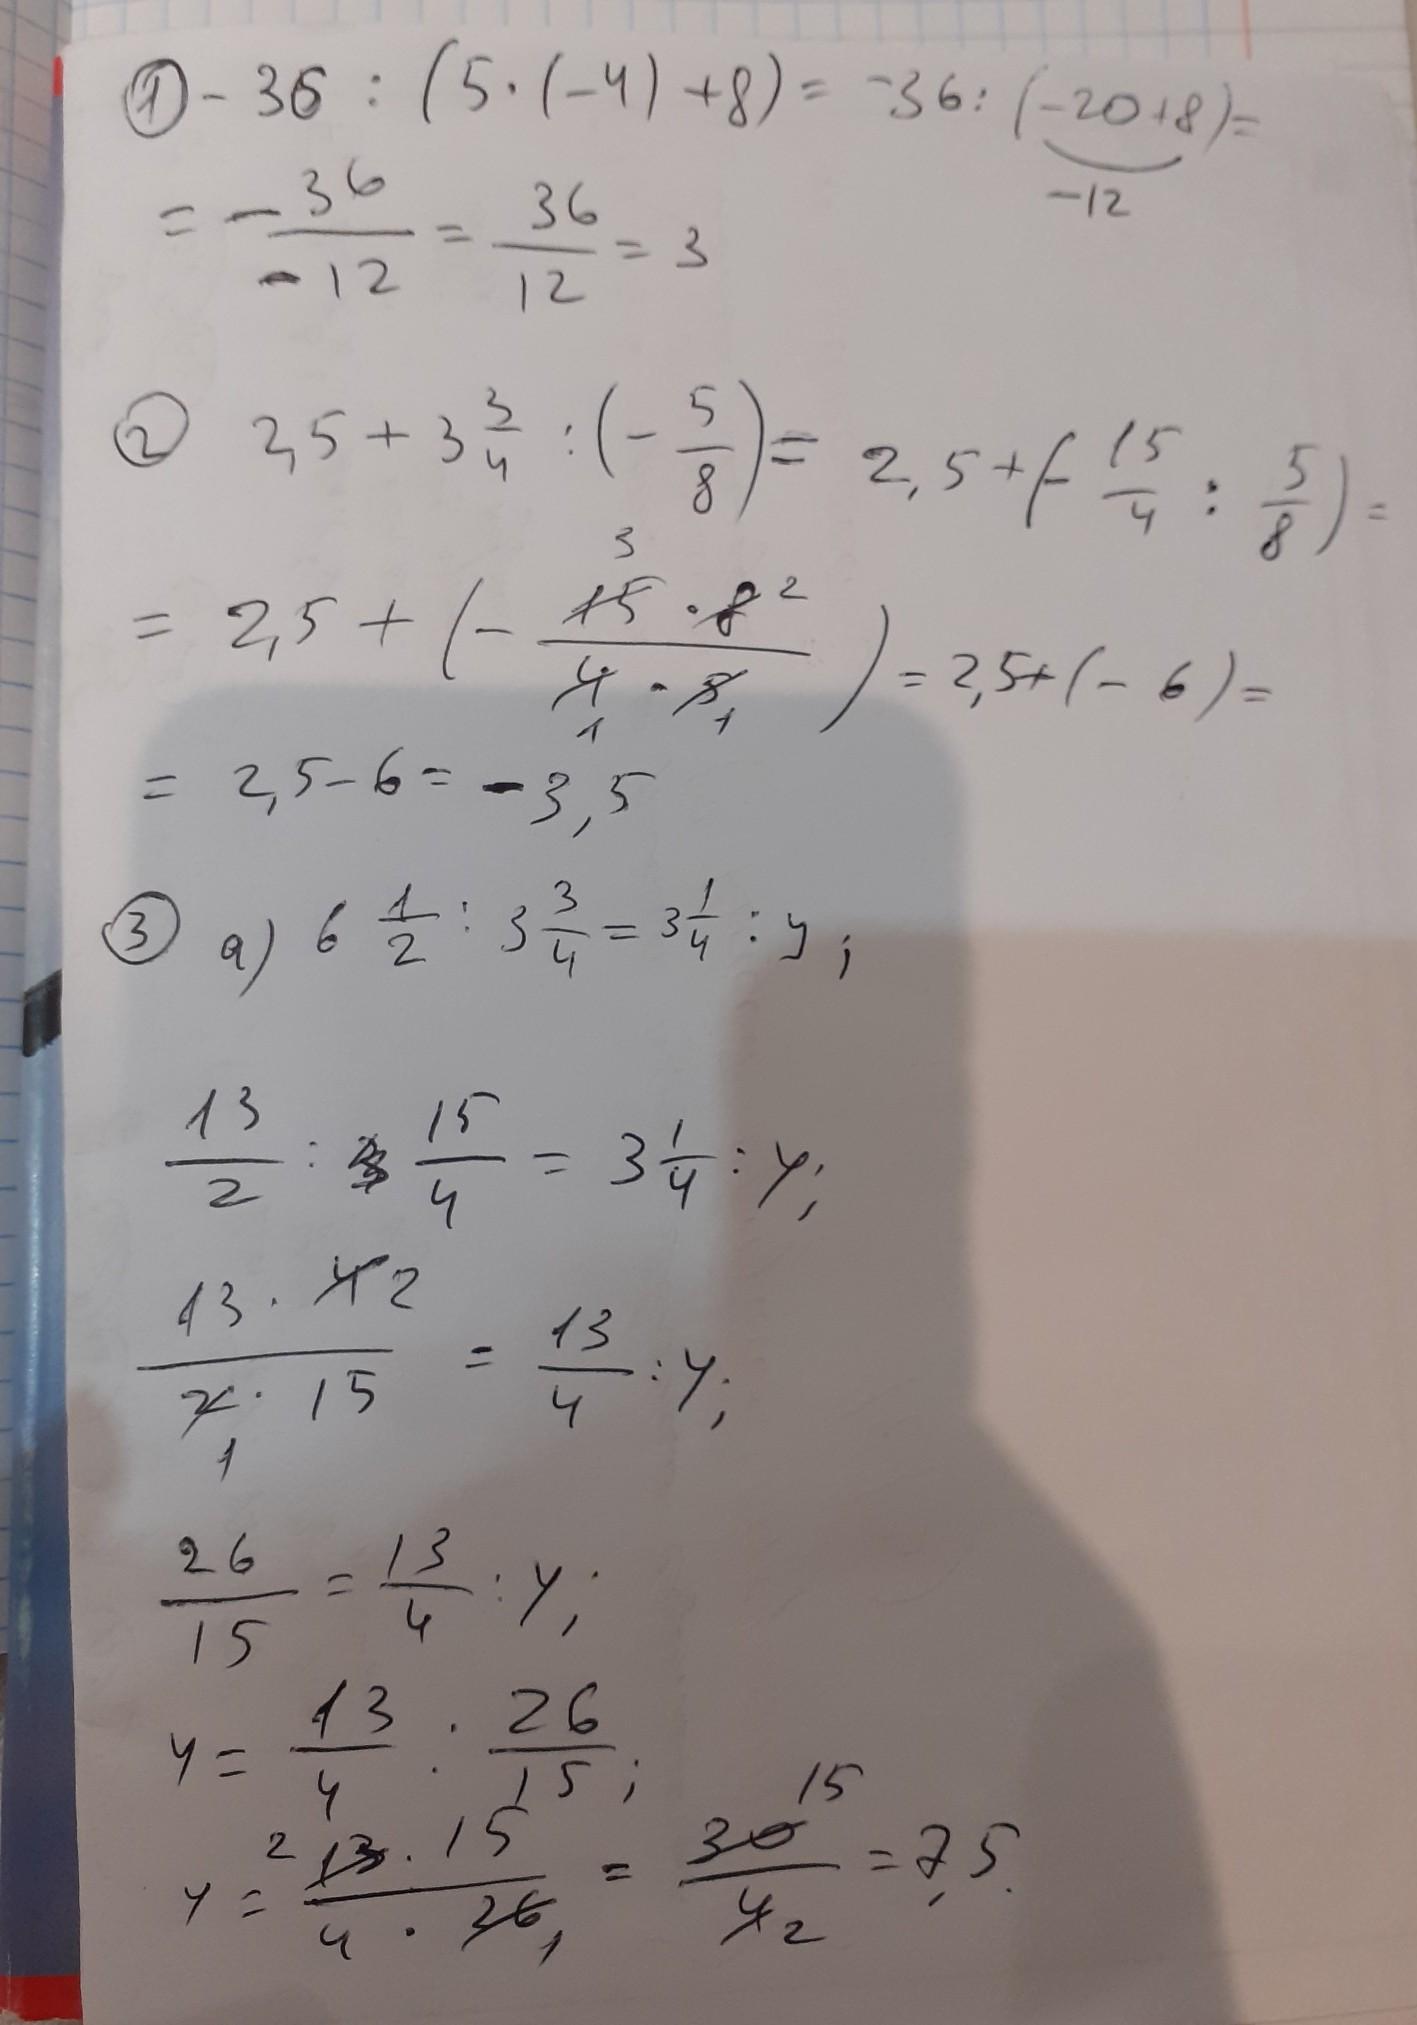 ① - 36 : (5·(-4)+8) = -36 : (-20+8) =
-12
= - 36/-12 = 36/12 = 3
② 2,5 + 3 3/4 : (- 5/8) = 2,5 + (- 15/4 : 5/8) =
= 2,5 + (- 15 3 · 8 2 / 4 1 · 5 1) = 2,5 + (- 6) =
= 2,5 - 6 = - 3,5
③ а) 6 1/2 : 3 3/4 = 3 1/4 : y;
13/2 : 15/4 = 3 1/4 : y;
13 · 4 2 / 2 1 · 15 = 13/4 : y;
26/15 = 13/4 : y;
y = 13/4 : 26/15;
y = 2 13 · 15 / 4 · 26 1 = 30 15 / 4 2 = 7,5.